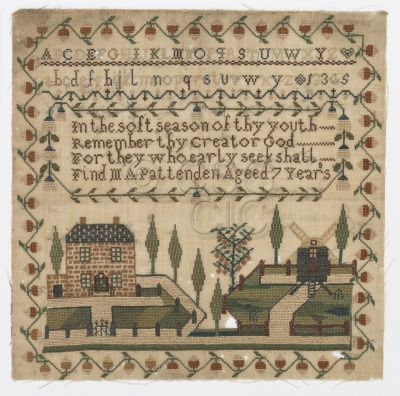 A C E G I K M O Q S U W Y
a b c d e f h i j l m n q s t u v w y 1 2 3 4 5
In the soft season of thy youth
Remember thy Creator God
For they who early seek shall
Find M A Pattenden Ageed 7 Year's